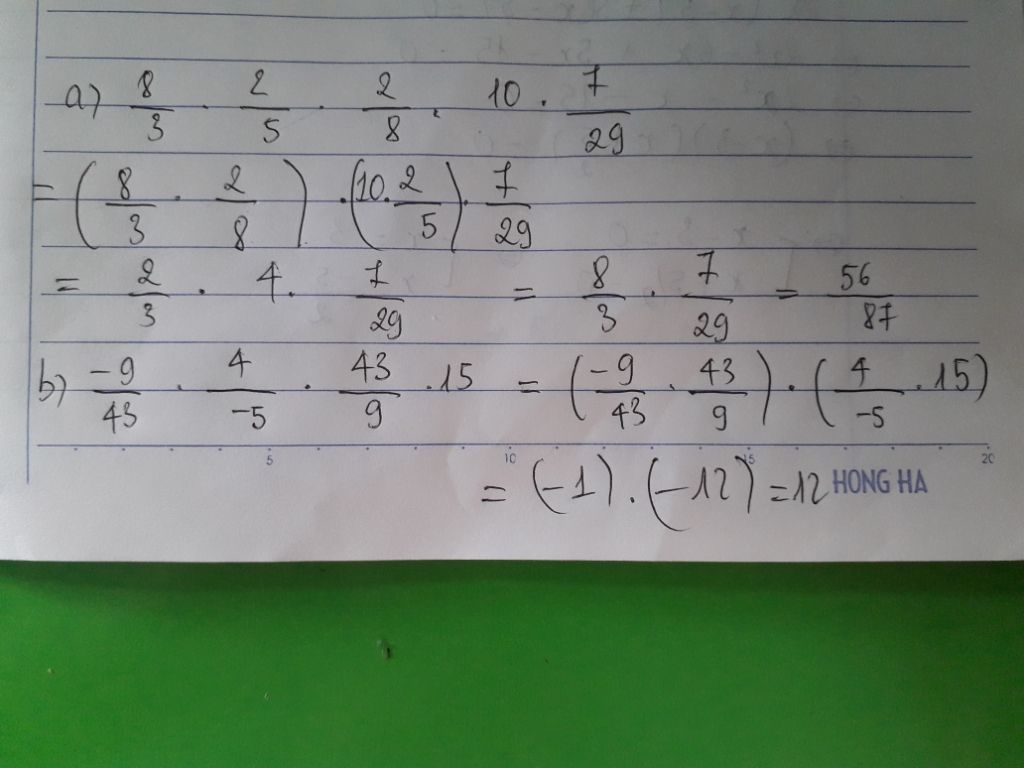 a) 8/3 . 2/5 . 2/8 . 10 . 7/29
= (8/3 . 2/8) . (10 . 2/5) . 7/29
= 2/3 . 4 . 7/29 = 8/3 . 7/29 = 56/87
b) -9/43 . 4/-5 . 43/9 . 15 = (-9/43 . 43/9) . (4/-5 . 15)
5 10 15 20
= (-1) . (-12) = 12 HONG HA